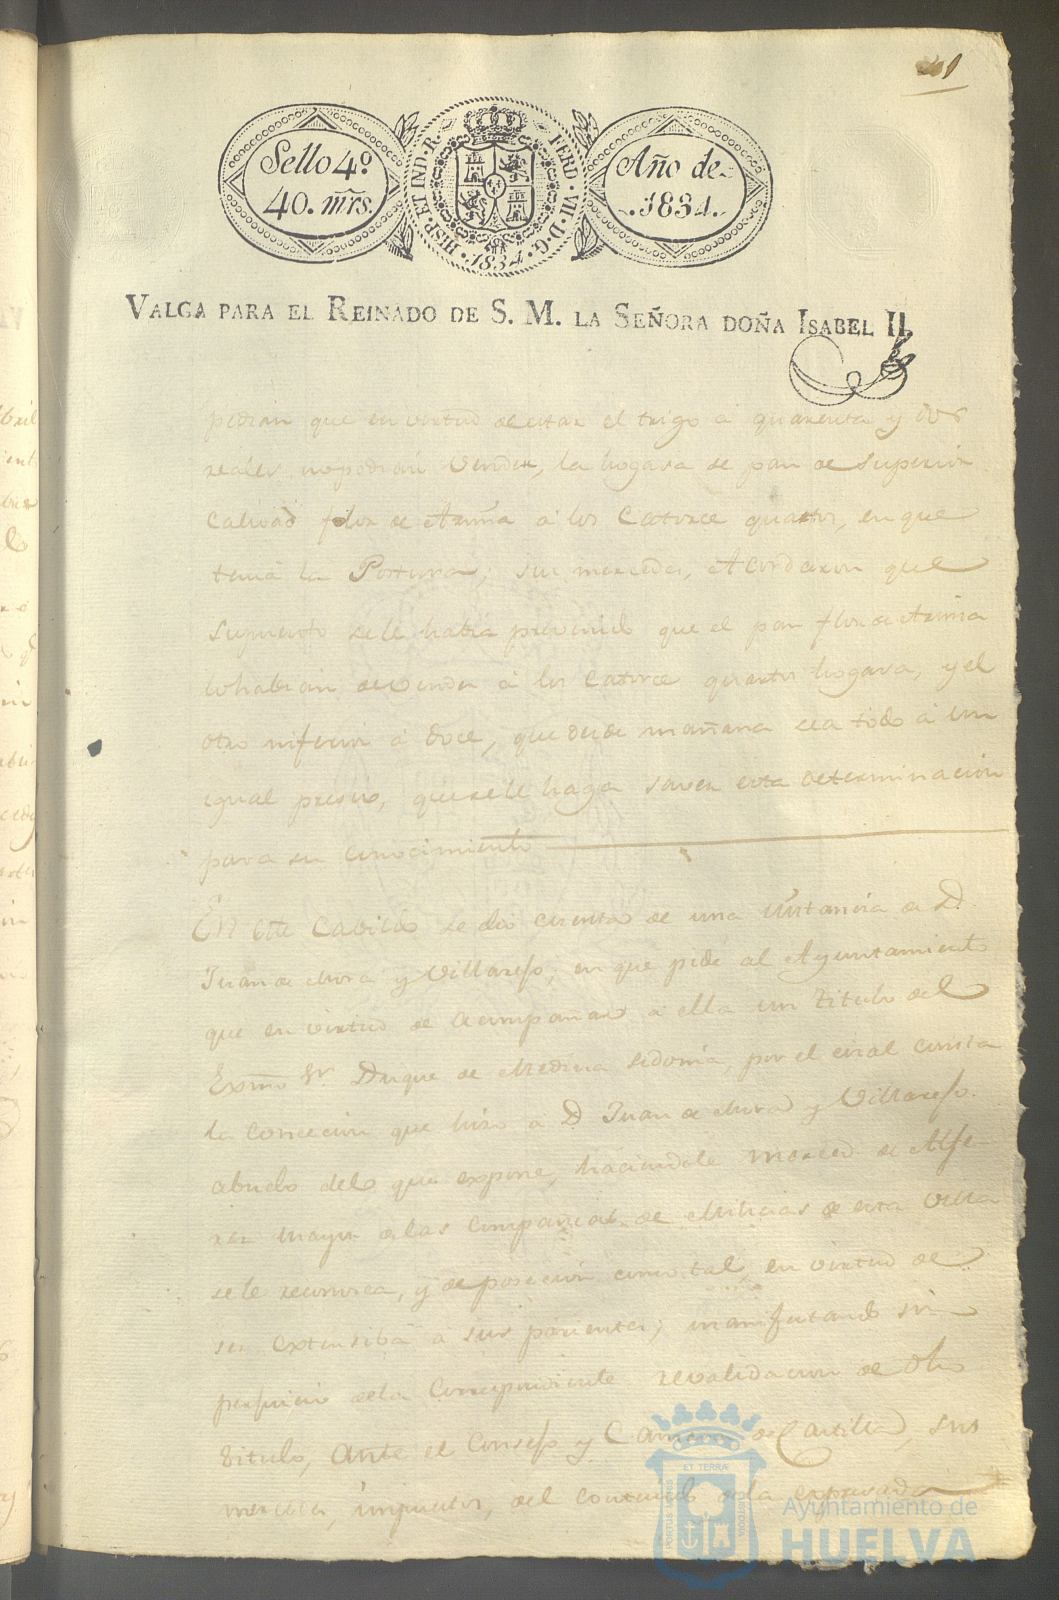 Sello 4º
40. mrs.
HISP. ET IND. R.
FERD. VII. D. G.
1834
Año de
1834.
VALGA PARA EL REINADO DE S. M. LA SEÑORA DOÑA ISABEL II.
pedian que en virtud de estar el trigo a quarenta y dos
reales no podian vender, la hogasa de pan de superior
calidad flor de Arina á los Catorce quartos, en que
tenia la Postura, sus mercedes, Acordaron que
supuesto sele habia prevenido que el pan flor de Arina
lo habian de vender á los Catorce quartos hogasa, y el
otro inferior á doce, que desde mañana sea todo á un
igual presio, que sele haga saver esta determinacion
para su conocimiento
En este Cavildo se dio cuenta de una instancia de D.
Juan de Mora y Villarejo, en que pide al Ayuntamiento
que en virtud de acompañar a ella un titulo del
Exmo Sr. Duque de Medina Sidonia, por el cual consta
la concecion que hizo á D Juan de Mora y Villarejo
abuelo del que expone, haciendole merced de Alfe
rez mayor de las Compañias de Milicias de esta Villa
se le reconosca, y de posecion como tal en virtud de
ser extensiba á sus parientes, manifestando sin
perjuicio dela Correspondiente revalidacion de dho
titulo, Ante el Consejo y Camara de Castilla, sus
mercedes, impuestos, del contenido dela expresada
ET TERRÆ
PORTUS MARIS
CUSTODIA
Ayuntamiento de
HUELVA